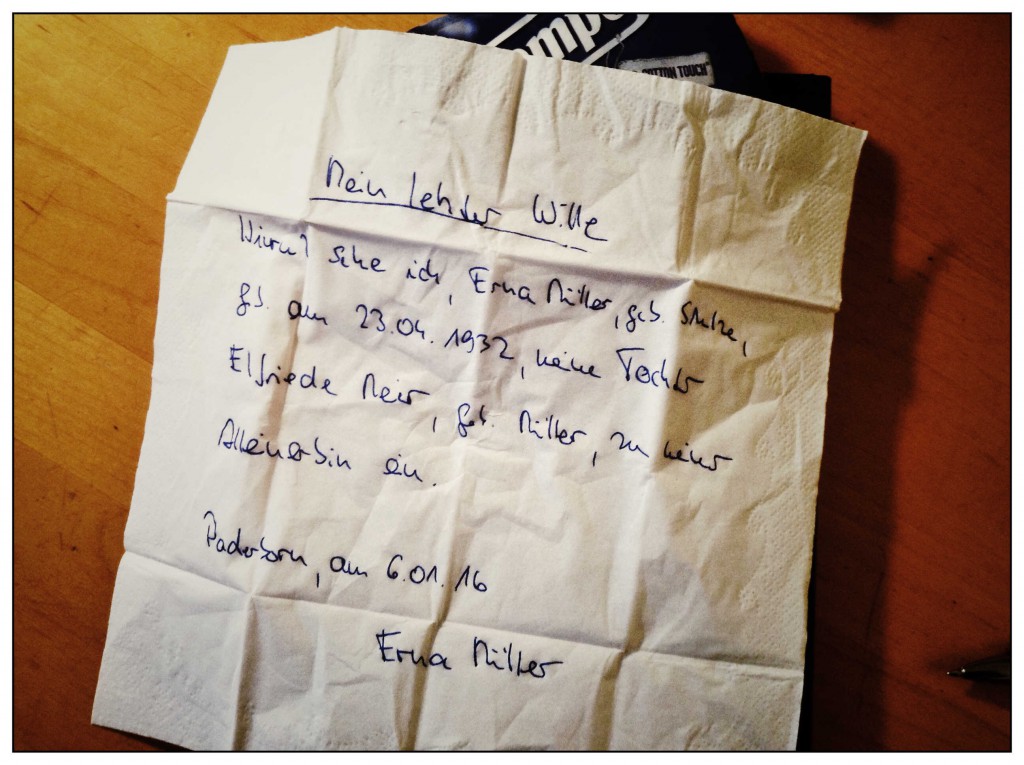 emp
COTTON TOUCH
Mein letzter Wille
Hiermit setze ich, Erna Müller, geb. Stulze,
geb. am 23.04.1932, meine Tochter
Elfriede Meier, geb. Müller, zu meiner
Alleinerbin ein.
Paderborn, am 6.01.16
Erna Müller